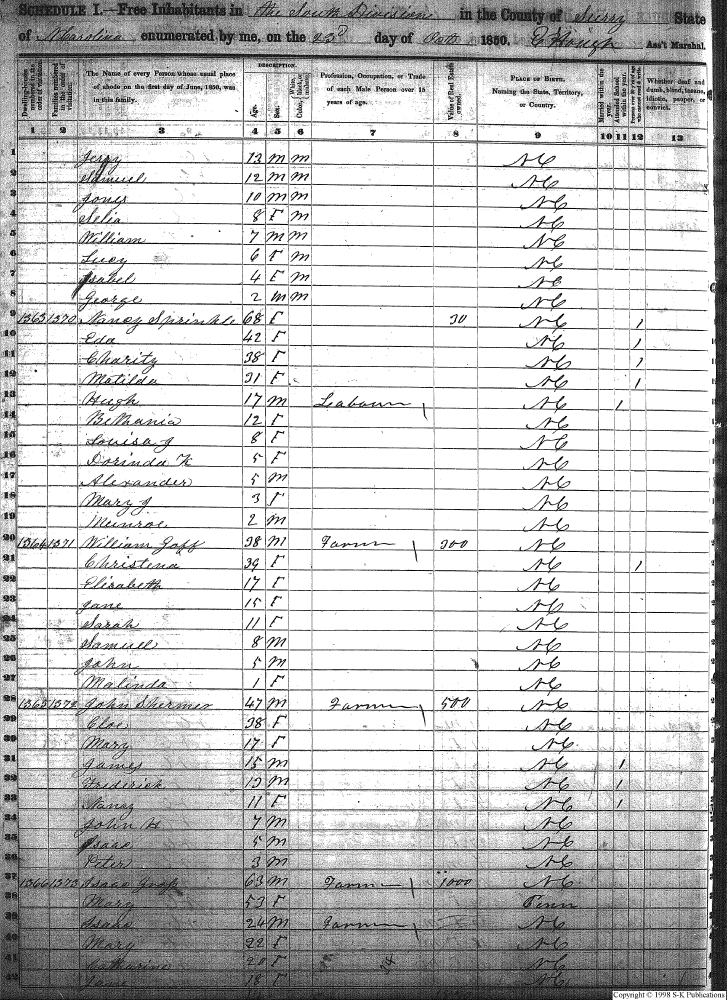 SCHEDULE I.—Free Inhabitants in the South Division in the County of Surry State
of N Carolina enumerated by me, on the 23d day of Octr 1850. E Hough Ass't Marshal.
The Name of every Person whose usual place of abode on the first day of June, 1850, was in this family.
DESCRIPTION.
Age.
Sex.
Profession, Occupation, or Trade of each Male Person over 15 years of age.
Value of Real Estate owned.
PLACE OF BIRTH.
Naming the State, Territory, or Country.
Married within the year.
Attended School within the year.
Whether deaf and dumb, blind, insane, idiotic, pauper, or convict.
1 2 3 4 5 6 7 8 9 10 11 12 13
1 Jerry 13 m m NC
2 Samuel 12 m m NC
3 Jones 10 m m NC
4 Selia 8 F m NC
5 William 7 m m NC
6 Lucy 6 F m NC
7 Isabel 4 F m NC
8 George 2 m m NC
9 1363 1370 Nancy Sprinkle 68 F 30 NC /
10 Eda 42 F NC /
11 Charity 38 F NC /
12 Matilda 31 F NC /
13 Hugh 17 m Labourer / NC /
14 Bethania 12 F NC
15 Louisa J 8 F NC
16 Dorinda K 5 F NC
17 Alexander 5 m NC
18 Mary J 3 F NC
19 Munroe 2 m NC
20 1364 1371 William Goff 38 m Farmer / 300 NC
21 Christena 39 F NC /
22 Elizabeth 17 F NC
23 Jane 15 F NC
24 Sarah 11 F NC
25 Samuel 8 m NC
26 John 5 m NC
27 Malinda 1 F NC
28 1365 1372 John Shermer 47 m Farmer / 500 NC
29 Cloe 38 F NC
30 Mary 17 F NC
31 James 15 m NC /
32 Frederick 13 m NC /
33 Nancy 11 F NC /
34 John H 7 m NC
35 Isaac 5 m NC
36 Peter 3 m NC
37 1366 1373 Isaac 63 m Farmer / 1000 NC
38 Mary 53 F Penn
39 Isaac 24 m Farmer / NC
40 Mary 22 F NC
41 Catharine 20 F NC
42 Jane 18 F NC
Copyright © 1998 S-K Publications